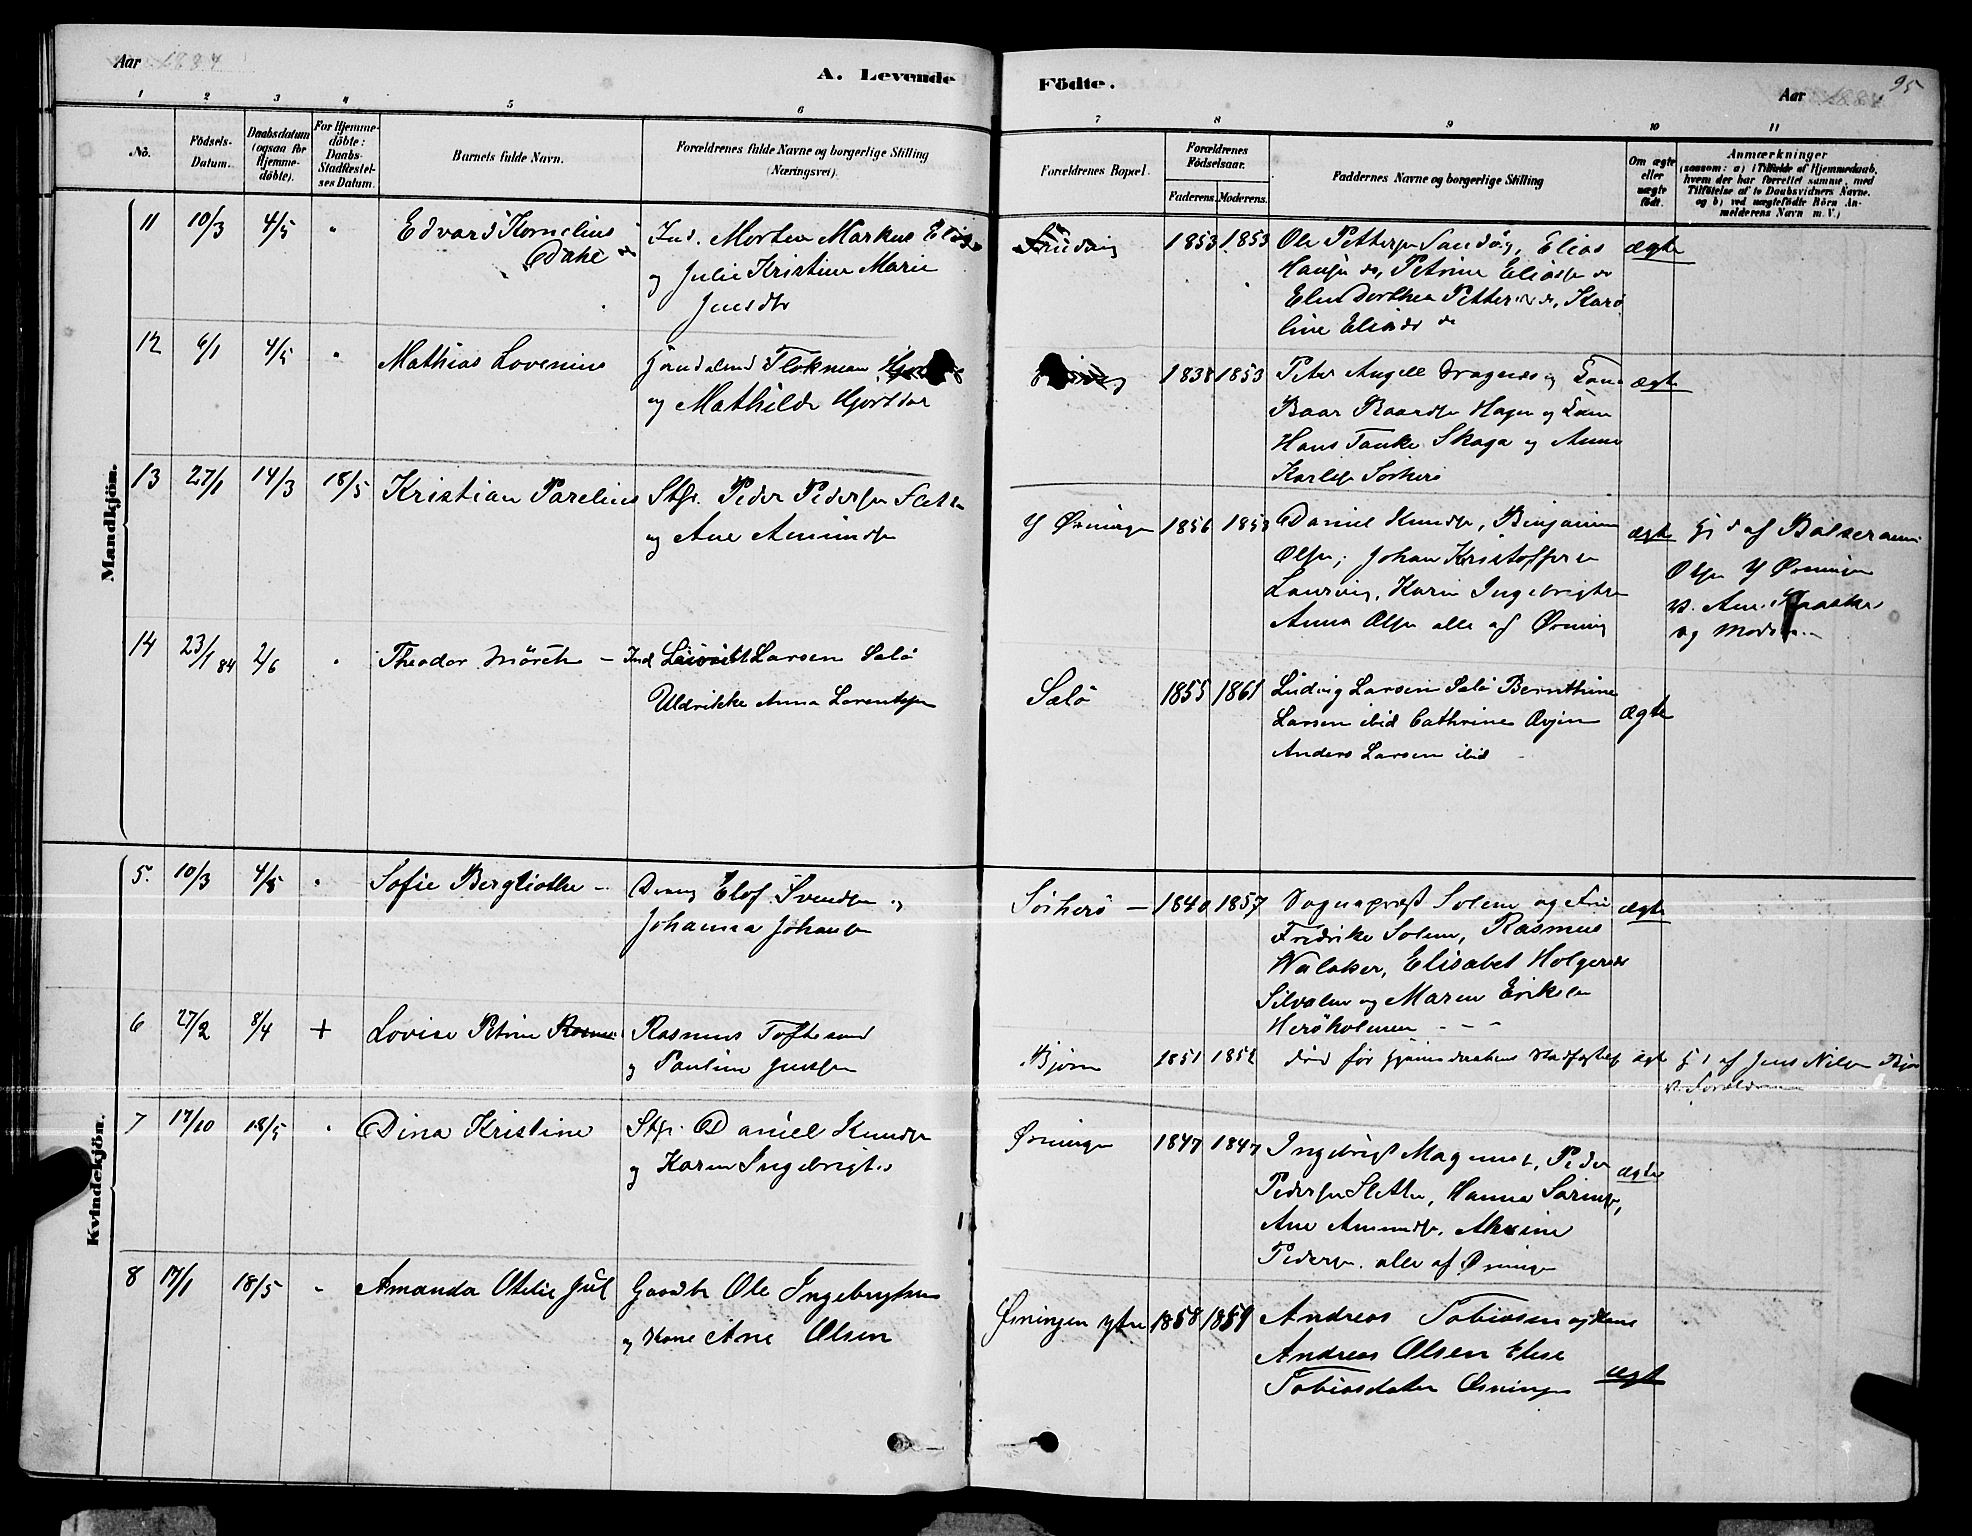 Aar 1884
A. Levende
Födte.
Aar 1884.
95
1 2 3 4 5 6 7 8 9 10 11
No.
Födsels-
Datum.
Daabsdatum
(ogsaa for
Hjemme-
döbte).
For Hjemme-
döbte:
Daabs-
Stadfæstel-
ses Datum.
Barnets fulde Navn.
Forældrenes fulde Navne og borgerlige Stilling
(Næringsvei).
Forældrenes Bopæl.
Forældrenes
Födselsaar.
Faderens. Moderens.
Faddernes Navne og borgerlige Stilling
Om ægte
eller
uægte
födt.
Anmærkninger
(saasom: a) i Tilfælde af Hjemmedaab,
hvem der har forrettet samme, med
Tilföielse af to Daabsvidners Navne.
og b) ved uægtefödte Börn An-
melderens Navn m. V.)
Mandkjön.
11 10/3 4/5 " Edvard Kornelius
Dahl
Ind. Morten Markus
og Julie Kristine Marie
Jensdtr
1853 1853
Ole Pettersen Sandög, Elias
Hansen do, Petrine Eliasse do
Elen Dorthea Petter do, Karo
line Eliasd do
ægte
12 6/1 4/5 " Mathias Lovenius
Flokman
og Mathilde Hjortdar
1838 1853
Peter Angell Dragnes og
Baar Baardsen Hagen og
Hans Tanke Skaga og Anne
Karlsen Sörherö
ægte
13 27/1 14/3 18/5 Kristian Parelius
Stfr. Peder Pedersen Slette
og Ane Amundsen
Y Øsningen
1856 1853
Daniel Knudsen, Benjamin
Olsen, Johan Kristoffersen
Laurvig, Karen Ingebrigtse
Anna Olsen alle af Øsning
ægte
Hj d af Balser
Olsen Y Øsningen
V. Ane
og Moderen
14 23/1 84 2/6 " Theodor Mörch -
Ind Larsen Salö
Uldrikke Anna Lorentsen
Salö
1855 1861
Ludvig Larsen Salö Bernthine
Larsen ibid Cathrine
Anders Larsen ibid
ægte
Kvindekjön.
5. 10/3 4/5 " Sofie Bergliothe -
Elof Svendsen og
Johanna Johansen
Sörherö -
1840 1857
Sognepræst Solem og Fru
Fredrike Solem, Rasmus
Walaker, Elisabet Holgersd
Silvalen og Maren Eriksen
Herøholmen - - -
ægte
6 27/2 8/4 + Lovise Petrine
Rasmus Toftesund
og Pauline Jenssen
Bjørn
1851 1852
død før hjemmedaabens stadfæstelse
ægte
Hj d af Jens Nilsen
V. Forældrene
7 17/10 18/5 " Dina Kristine
Stfr. Daniel Knudsen
og Karen Ingebrigts
Øsningen
1847 1847
Ingebrigt Magnus, Peder
Pedersen Slette, Hanna
Ane Amundsen,
Pedersen. alle af Øsningen
ægte
8 17/1 18/5 " Amanda Otelie Jul
Gaardbr Ole Ingebrigtsen
og Kone Ane Olsen
Øsningen ytre
1858 1859
Andreas Tobiasen og Kone
Andreas Olsen Elise
Tobiasdatter Øsningen
ægte